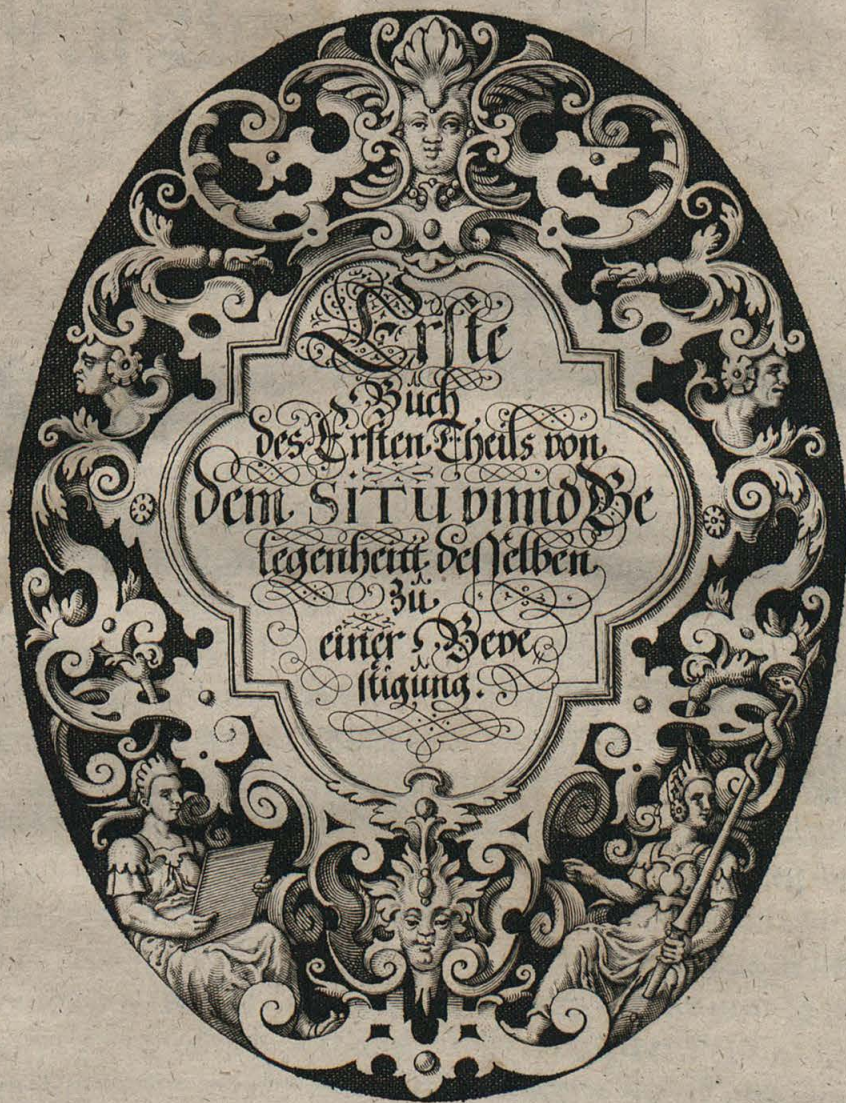 Erste
Buch
des Ersten Theils von
dem SITU vnnd Ge
legenheitt desselben
zu
einer Beve
stigung.